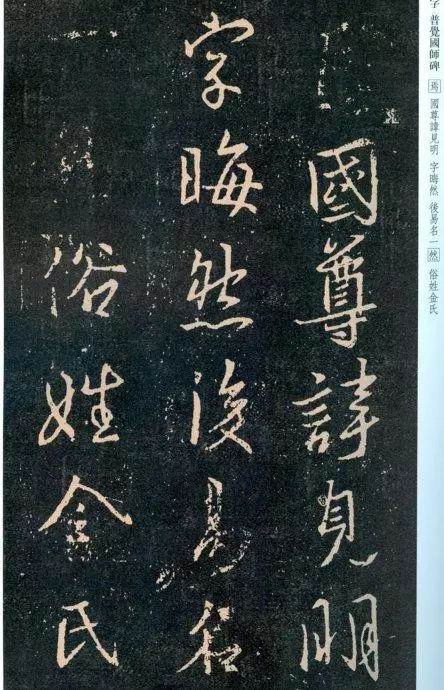 國尊諱見明
字晦然後易名
一
俗姓金氏
字 普覺國師碑
焉 國尊諱見明 字晦然 後易名一然 俗姓金氏